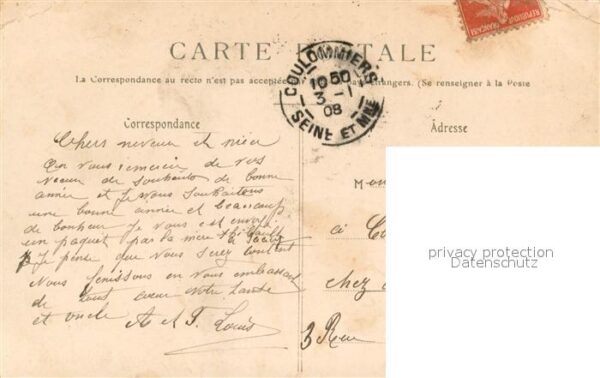 CARTE POSTALE
La Correspondance au recto n'est pas acceptée gers. (Se renseigner à la Poste
REPUBLIQUE
COULOMMIERS
10 50
3 - 1
08
SEINE ET MNE
Correspondance
Adresse
Chers neveux et niece
On vous remercie de vos
voeux de souhaits de bonne
année et Je vous souhaitons
une bonne année et beaucoup
de bonheur Je vous est envoyé
un paquet par la mère
Je pense que vous serez content
Nous finissons en vous embrassant
de tout coeur votre tante
et oncle A et F. Louis
à
chez
3 Rue
privacy protection
Datenschutz